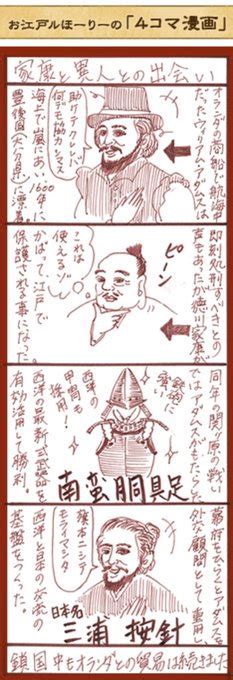 お江戸ルほーりーの「4コマ漫画」
家康と異人との出会い
オランダの商船で航海中
だったウィリアム・アダムスは
助けテクレレバ
何デモ協力シマス
海上で嵐にあい1600年に
豊後国(大分県)に漂着。
即刻処刑すべきとの
声もあったが徳川家康が
ピーン
これは
使えるゾ
かばって、江戸で
保護される事になった。
同年の関ヶ原の戦い
ではアダムスがもたらした
鉄砲に
強い
西洋の
甲冑も!
南蛮胴具足
西洋の最新式武器を
有効活用して勝利。
幕府をひらくとアダムスを
外交顧問として重用し
旗本ニシテ
モライマシタ
日本名
三浦 按針
西洋と日本の交流の
基盤をつくった。
鎖国中もオランダとの貿易は続きました